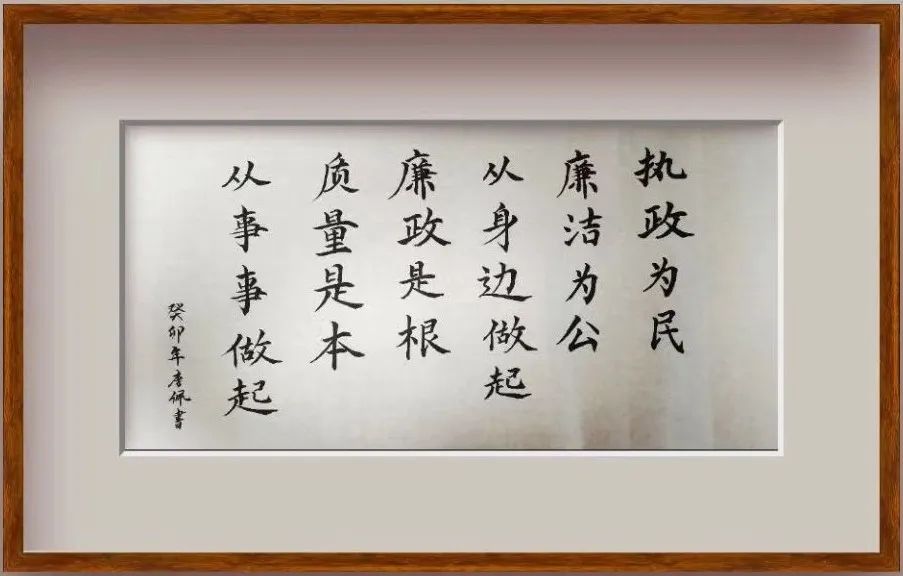 执政为民
廉洁为公
从身边做起
廉政是根
质量是本
从事事做起
癸卯年李佩書